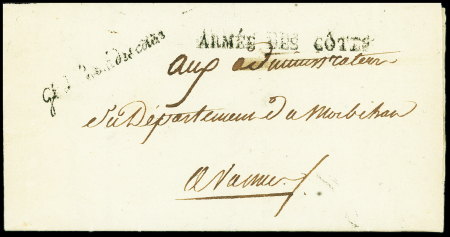 ARMÉE DES CÔTES
aux administrateurs
du Département du Morbihan
a Vannes